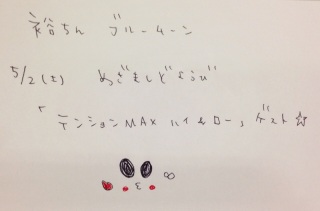 裕ちん ブルームーン
5/2(土) めざましどようび
「テンションMAX ハイ&ロー」ゲスト☆